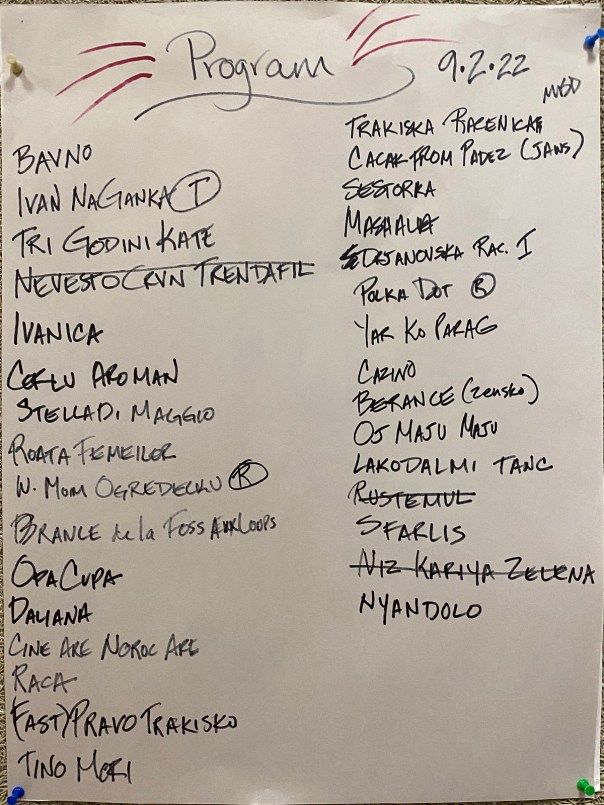 Program
9.2.22
BAVNO
IVAN NAGANKA (T)
TRI GODINI KATE
NEVESTO CRVN TRENDAFIL
IVANICA
CORLU AROMAN
STELLA DI MAGGIO
ROATA FEMEILOR
W. MOM OGREDECKU (R)
BRANLE de la FOSS AUX LOUPS
OPA CUPA
DALIANA
CINE ARE NOROC ARE
RACA
(FAST) PRAVO TRAKISKO
TINO MORI
TRAKISKA RACENICA
CACAK FROM PADEZ (JAWS)
SESTORKA
MASHALA
RAC. I
POLKA DOT (R)
YAR KO PARAG
CAZINO
BERANCE (zensko)
OJ MAJU MAJU
LAKODALMI TANC
RUSTEMUL
SFARLIS
NIZ KARIYA ZELENA
NYANDOLO